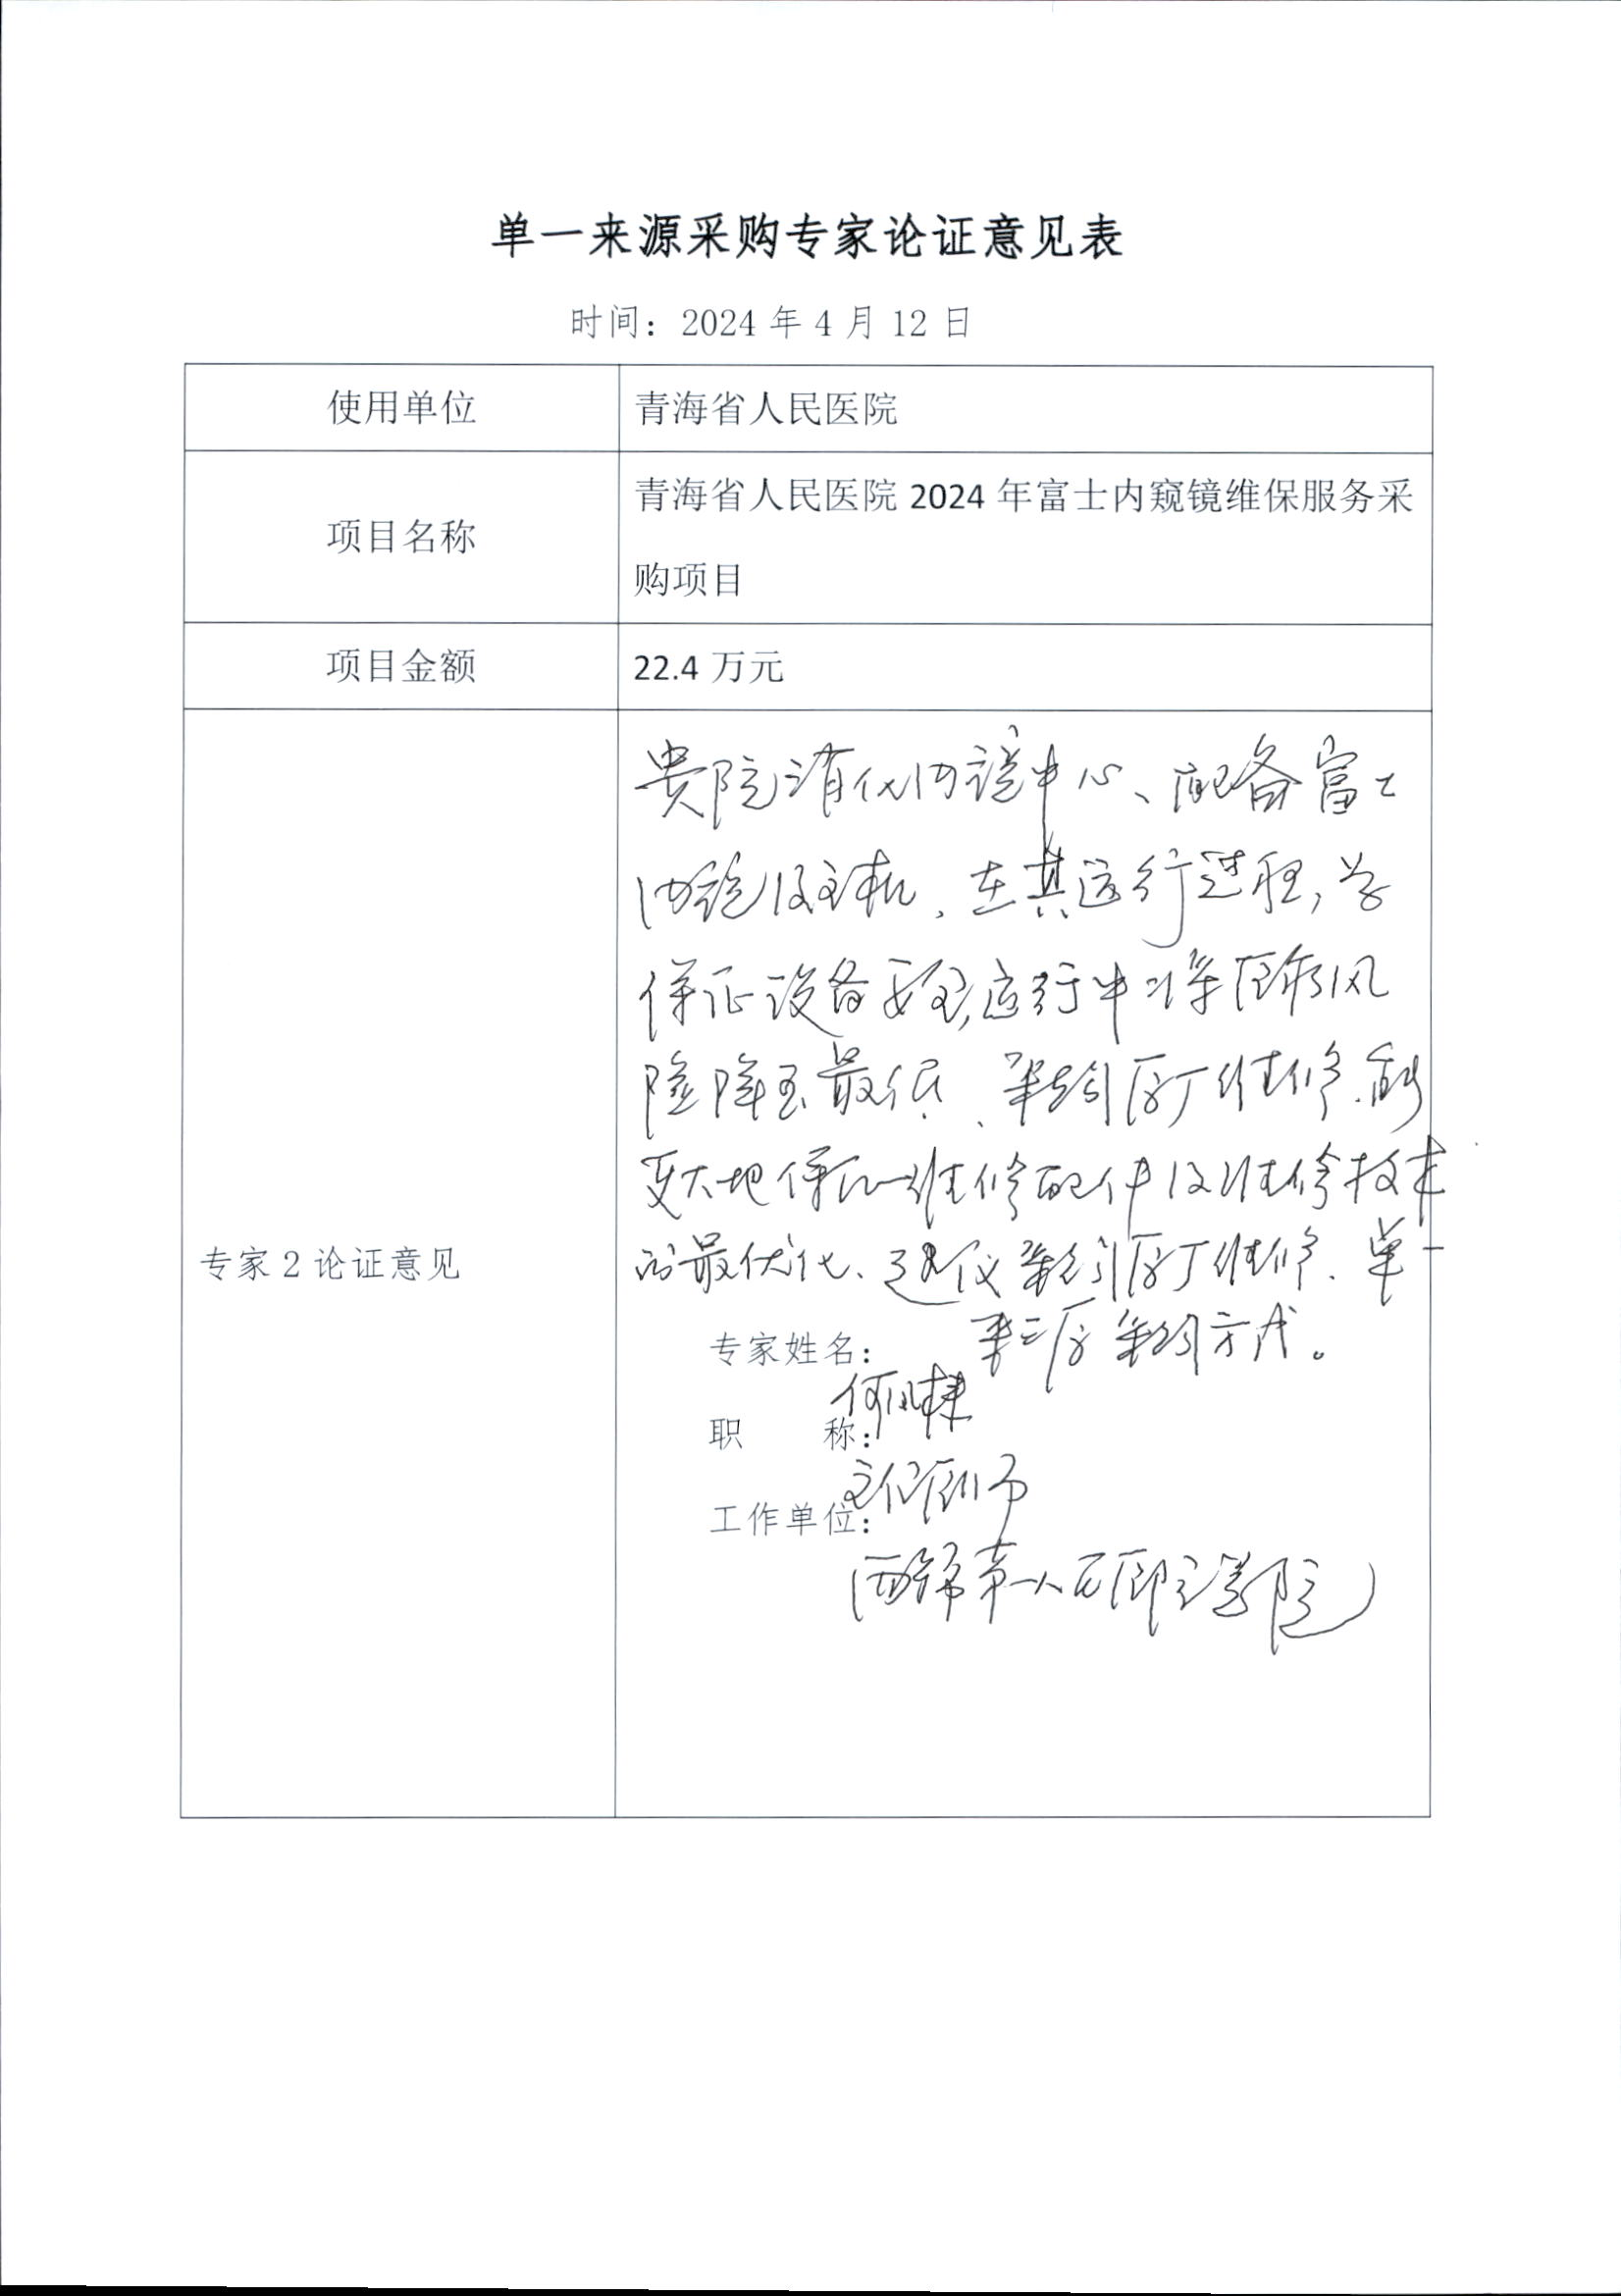 单一来源采购专家论证意见表
时间：2024 年 4 月 12 日
使用单位
青海省人民医院
项目名称
青海省人民医院 2024 年富士内窥镜维保服务采
购项目
项目金额
22.4 万元
专家 2 论证意见
贵院消化内镜中心、配备富士
内镜及主机、在其运行过程，为
保证设备安全运行中将医疗风
险降至最低、采购原厂维修、能
更大地保证维修配件及维修技术
的最优化、建议采购原厂维修、单一
来源采购方式。
专家姓名：
职 称：
主任医师
工作单位：
西宁市第一人民医院